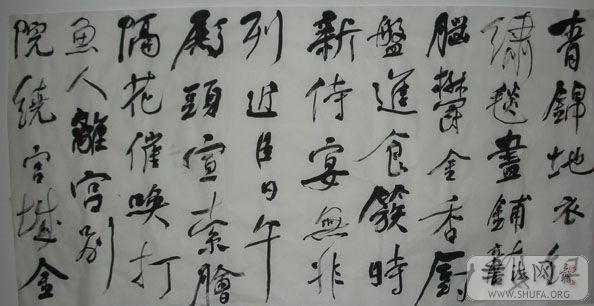 青錦地衣红
繡毯盡鋪
腦鬱金香廚
盤進食簇時
新侍宴無非
列近臣日午
殿頭宣索膾
隔花催喚打
魚人離宮别
院繞宫城金
书法网
WWW.SHUFA.ORG